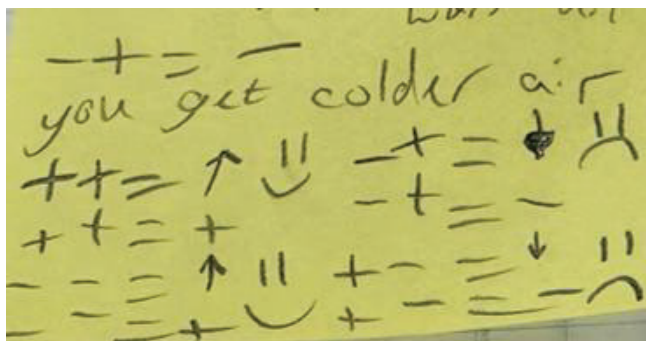 - + = -
you get colder air
+ + = ↑ - + = ↓
+ + = + - + = -
- - = ↑ + - = ↓
- - = + + - = -